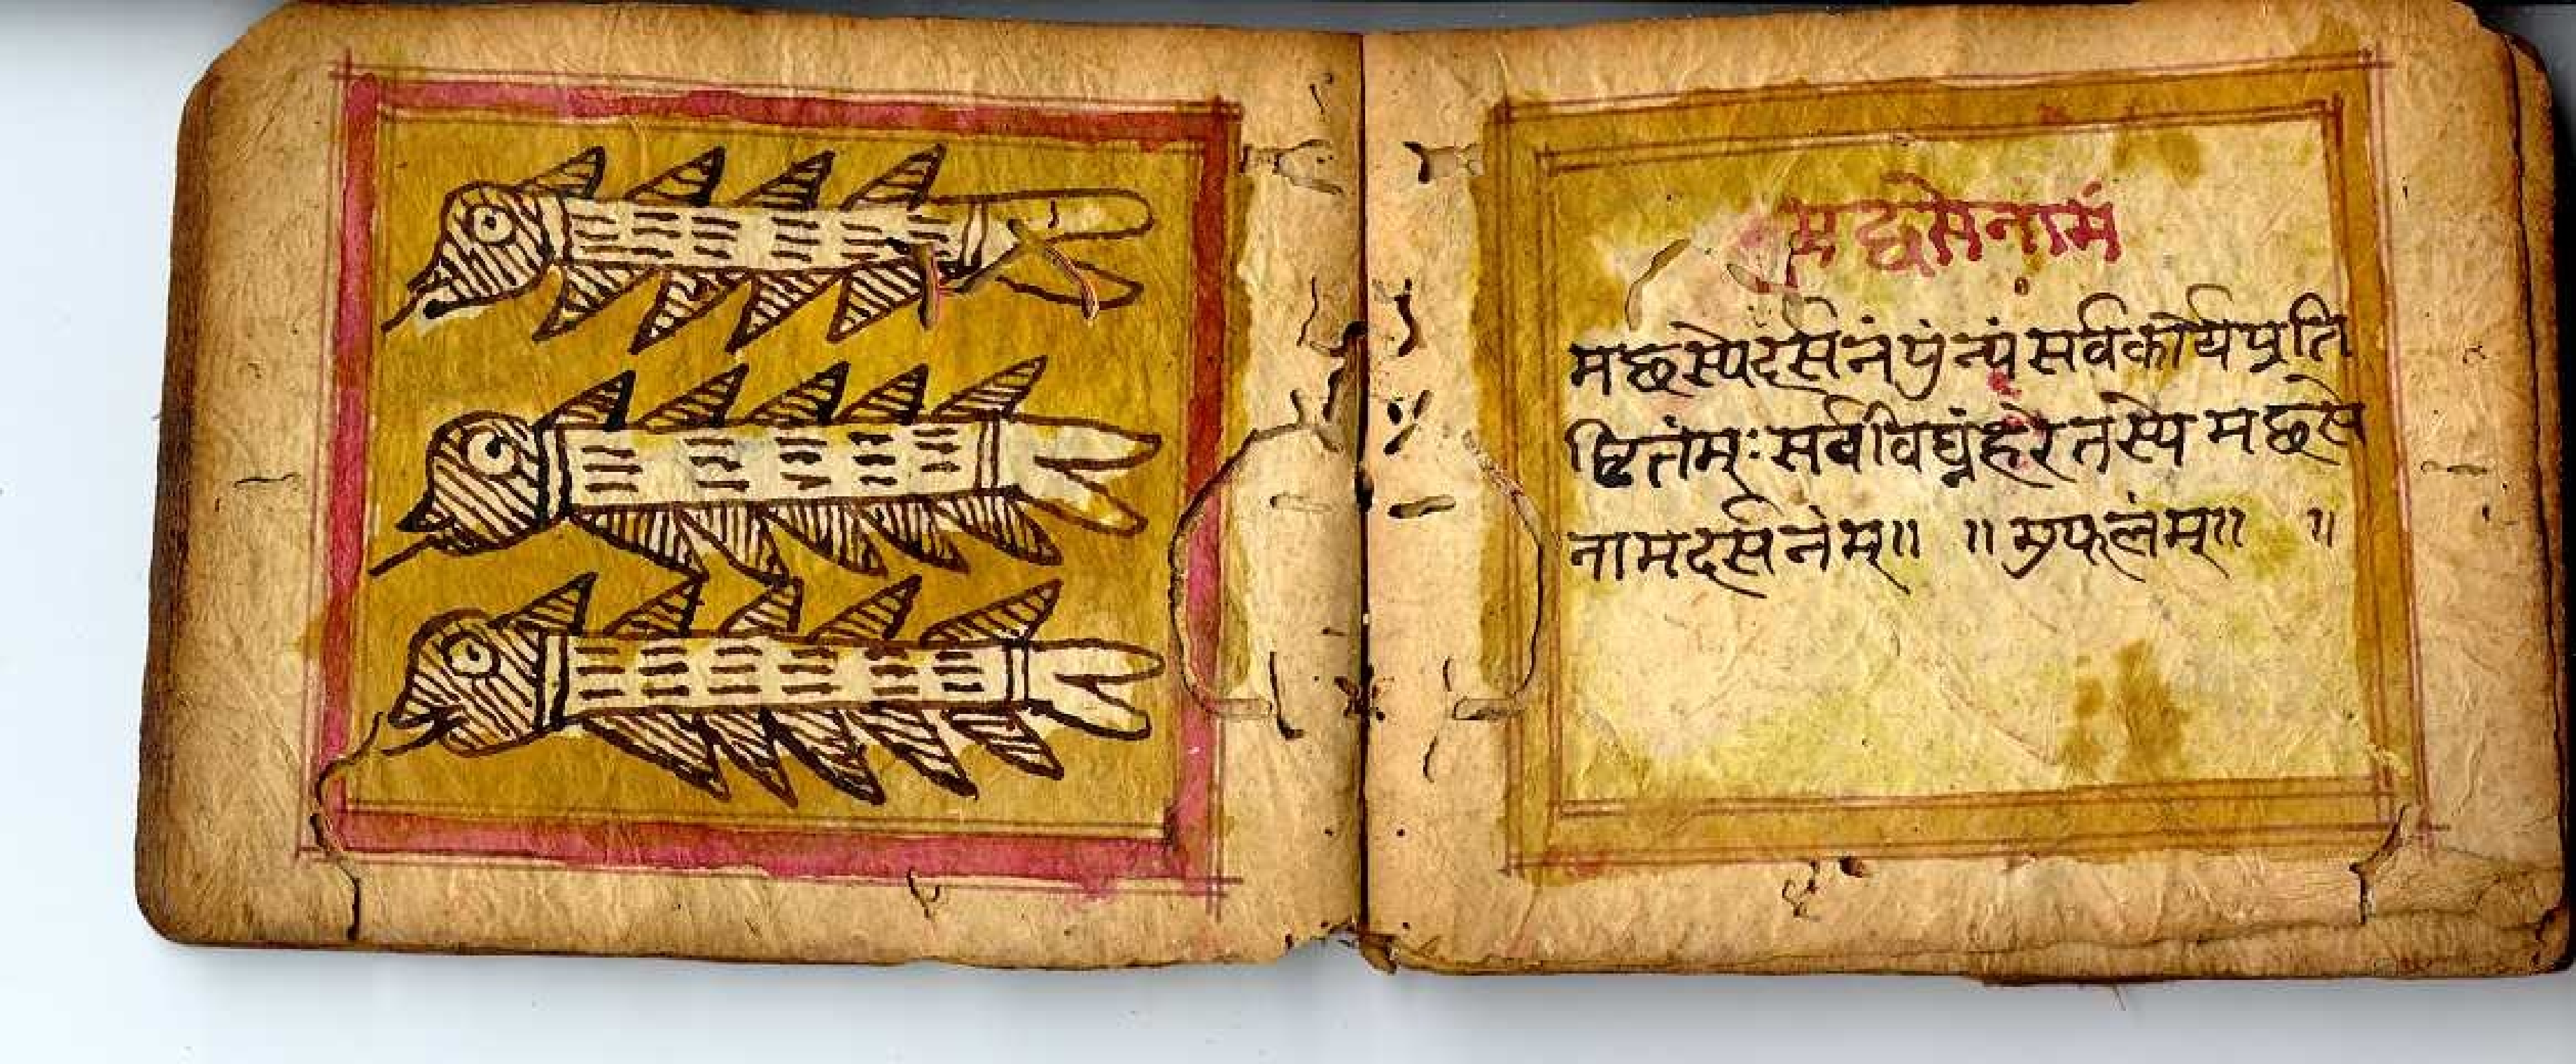 मछसेनामं
मछस्पेदर्सनंपुंन्यंसर्वकार्यप्रति
ष्टितंम्ः सर्वविघ्नंहरेतस्पे मछसे
नामदर्सनंम्॥ ॥ अफलंम्॥ ॥